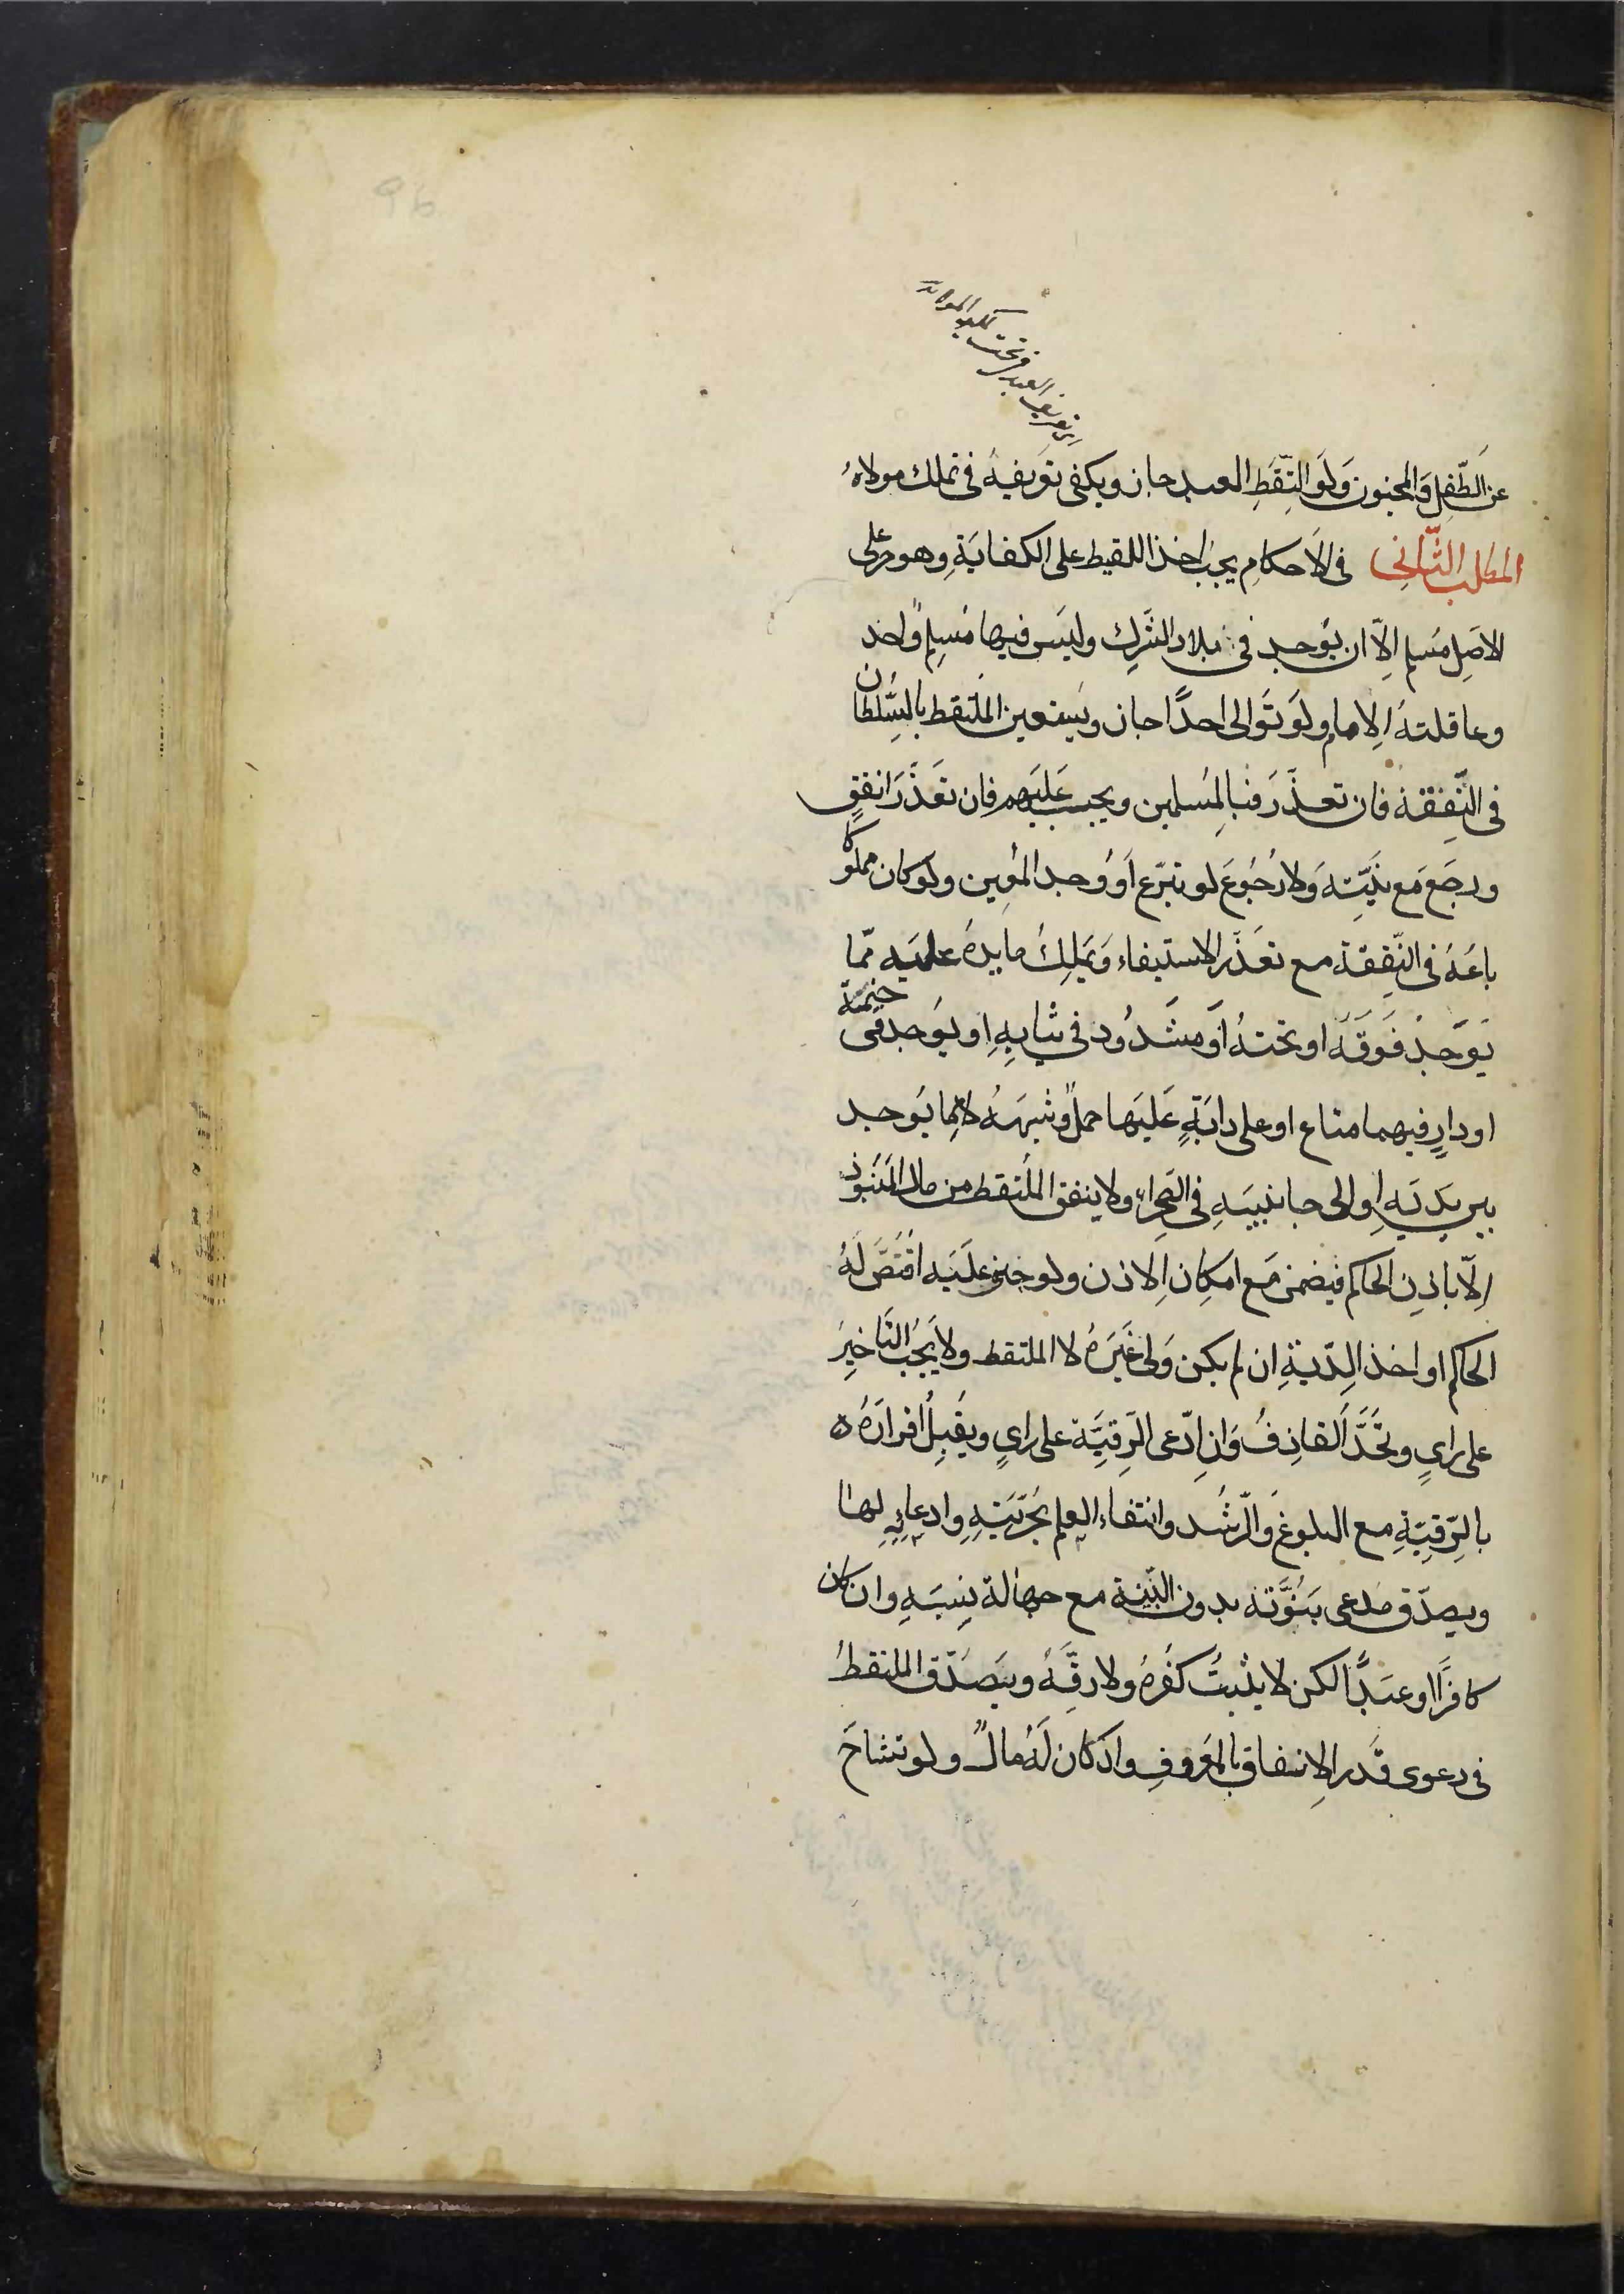 عن الطّفل والمجنون ولو التقط العبد جاز ويكفي تعريفه في تملك مولاهُ
المطلب الثّاني في الاحكام يجب اخذ اللقيط على الكفاية وهو حر على
الاصل مسلم الّا ان يوجد في بلاد الشرك وليس فيها مسلم واحد
وعاقلته الامام ولو توالى احدًا جاز ويستعين الملتقط بالسّلطان
في النّفقة فان تعذّر فبالمسلمين ويجب عليهم فان تعذّر انفق
ورجع مع نيّته ولا رجوع لو تبرّع او وجد المعين ولو كان مملوكا
باعه في النّفقة مع تعذّر الاستيفاء ويملك ما يده عليه ممّا
يوجد فوقه او تحته او مشدود في ثيابه او يوجد في خيمة
او دارٍ فيهما متاع او على دابّةٍ عليها حملٌ وشبهه لا بما يوجد
بين يديه او الى جانبيه في الصحراء ولا ينفق الملتقط من مال المنبوذ
الّا باذن الحاكم فيضمن مع امكان الاذن ولو جني عليه اقتصّ له
الحاكم او اخذ الدّية ان لم يكن ولي غيره لا الملتقط ولا يجب التاخير
على راي ويحدّ القاذف وان ادّعى الرّقيّة على راي ويقبل اقراره
بالرّقيّة مع البلوغ والرّشد وانتفاء العلم بحرّيّته وادعائه لها
ويصدّق مدعي بنوّته بدون البيّنة مع جهالة نسبه وان كان
كافرًا او عبدًا لكن لا يثبت كفره ولا رقّه ويصدّق الملتقط
في دعوى قدر الانفاق بالمعروف واذ كان له مالٌ ولو تشاحّ